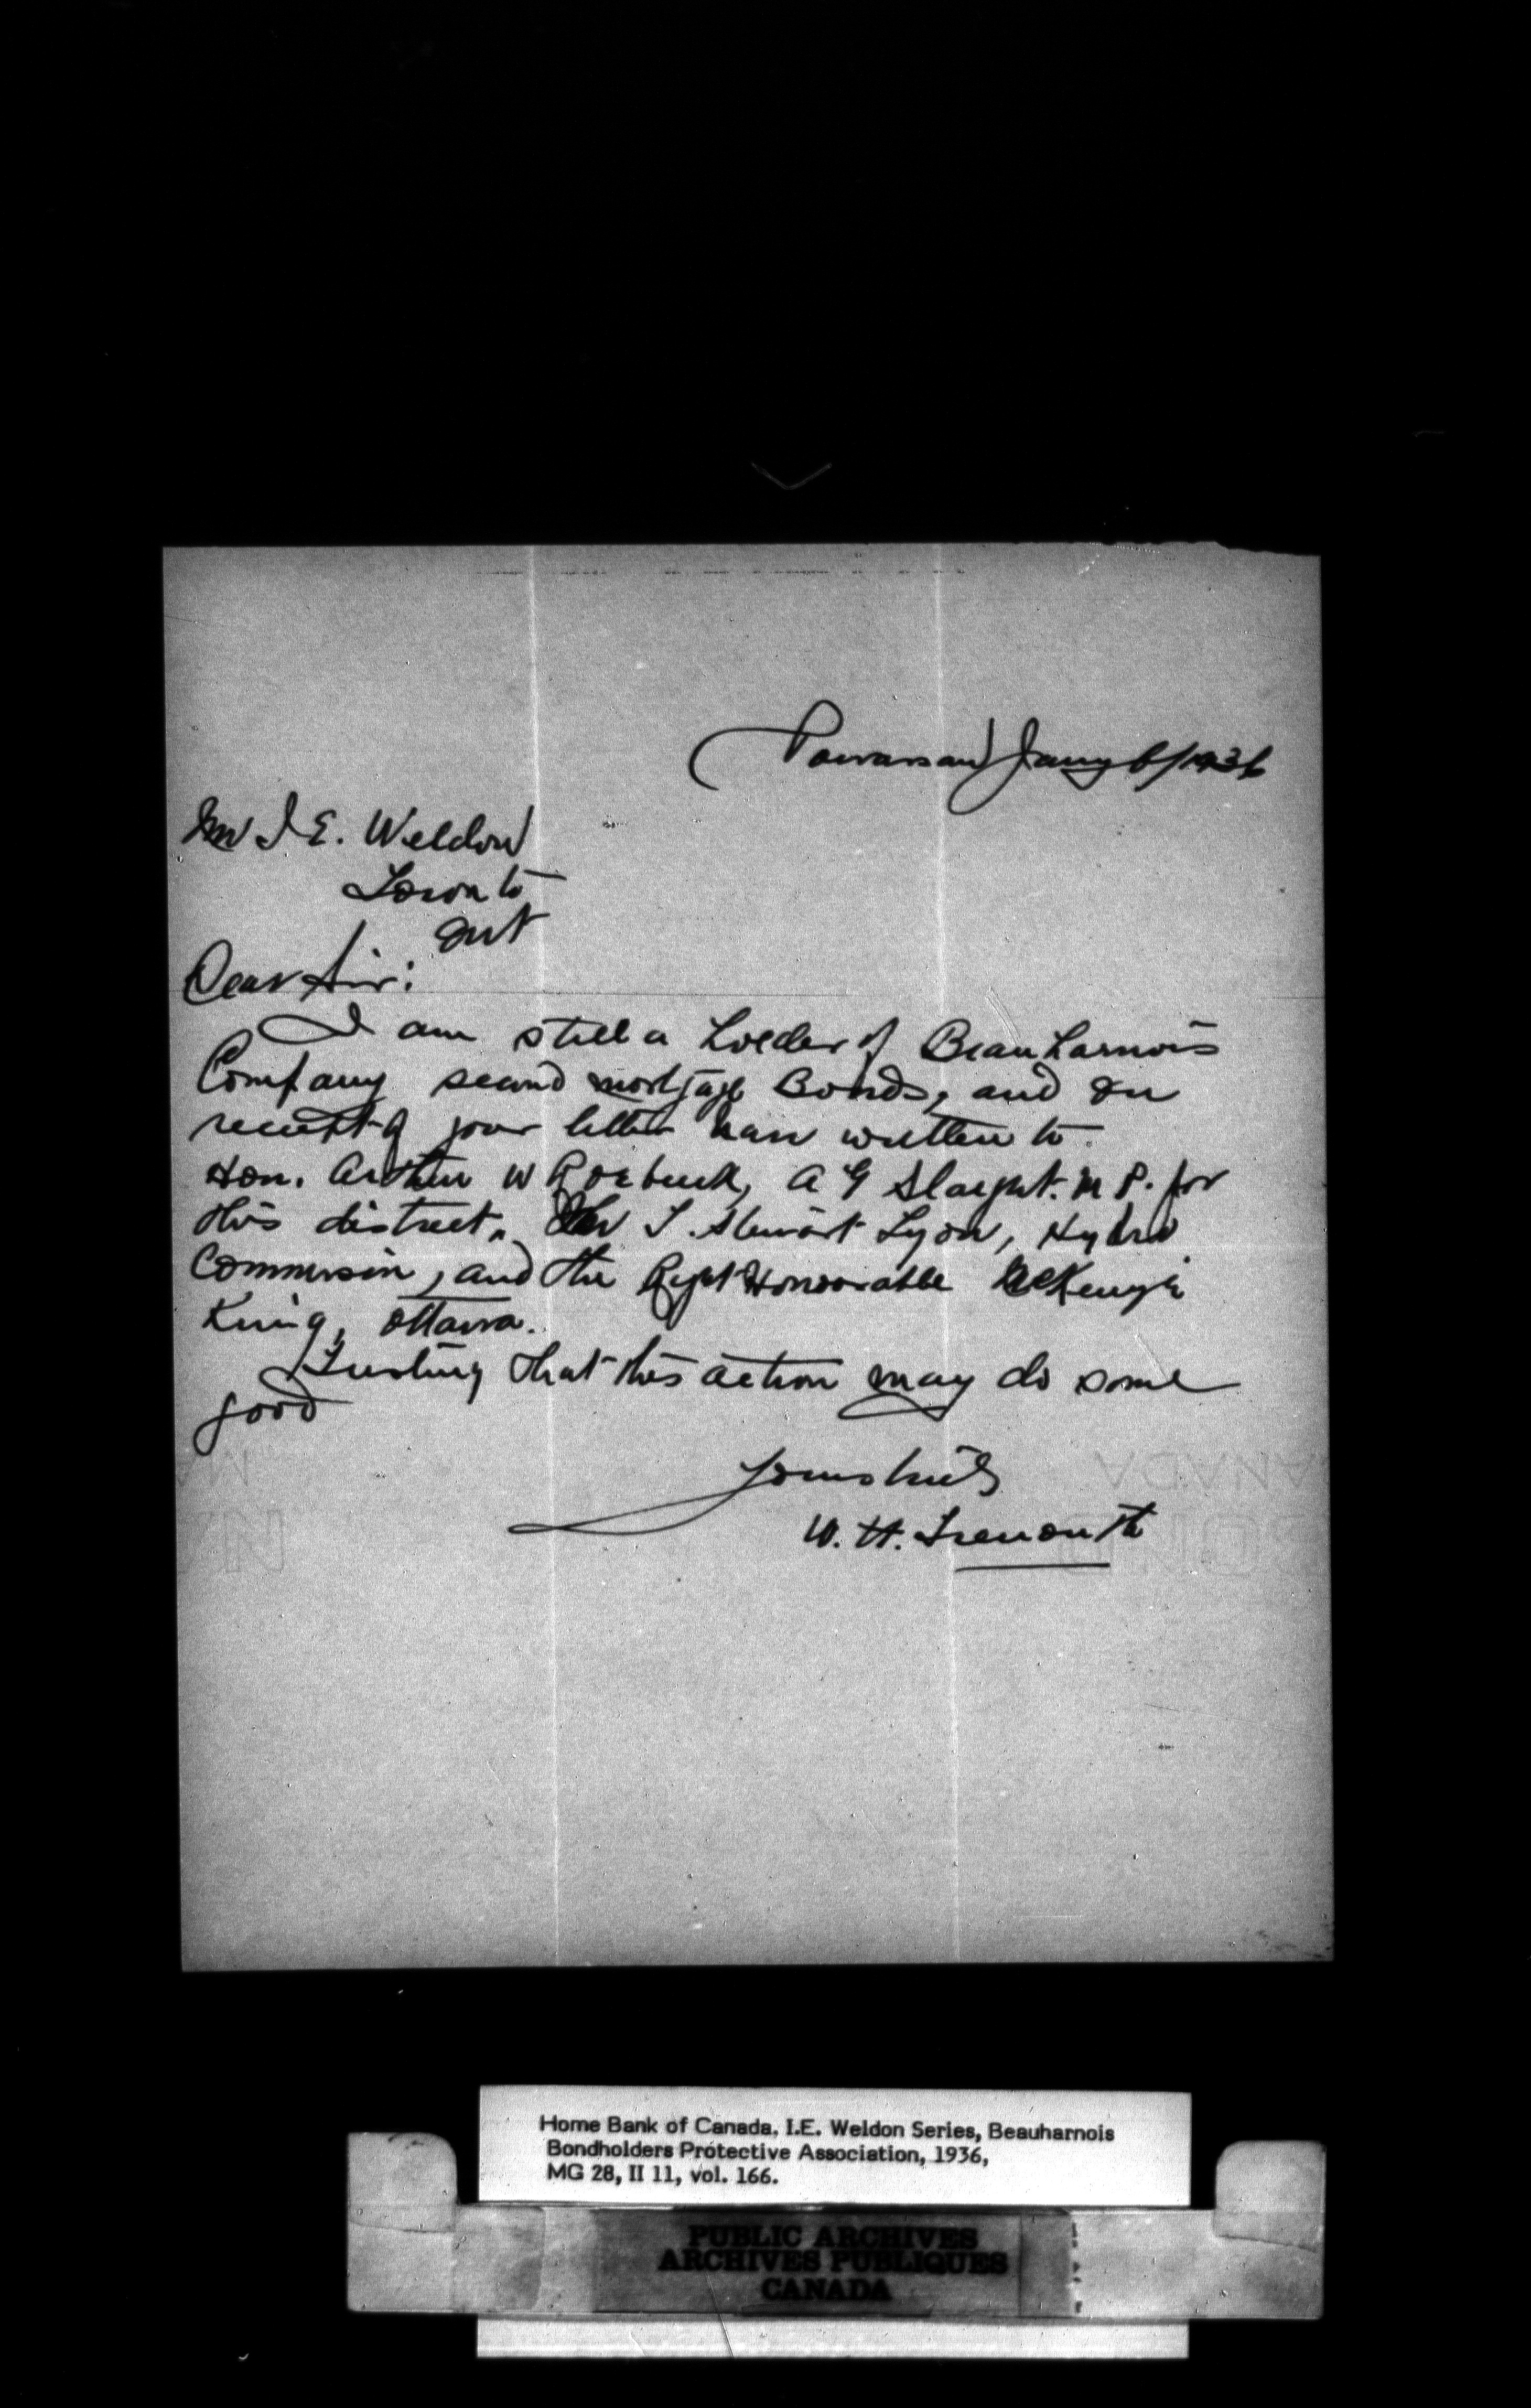 Powassan Jany 6/1936
Mr I E. Weldon
Toronto
Ont
Dear Sir:
I am still a holder of Beauharnois
Company second mortgage Bonds, and on
receipt of your letter have written to
Hon. Arthur W Roebuck, A G Slaght. M P. for
this district, Mr T. Stewart Lyon, Hydro
Commission, and the Right Honourable McKenzie
King, Ottawa.
Trusting that this action may do some
good
Yours truly
W. H.
CANADA
Home Bank of Canada. I.E. Weldon Series, Beauharnois
Bondholders Protective Association, 1936,
MG 28, II 11, vol. 166.
PUBLIC ARCHIVES
ARCHIVES PUBLIQUES
CANADA